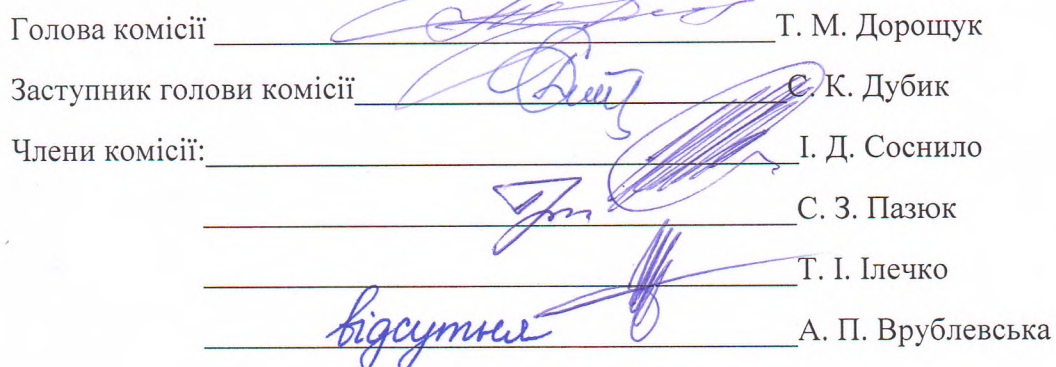 Голова комісії Т. М. Дорощук
Заступник голови комісії С. К. Дубик
Члени комісії: І. Д. Соснило
С. З. Пазюк
Т. І. Ілечко
відсутня А. П. Врублевська